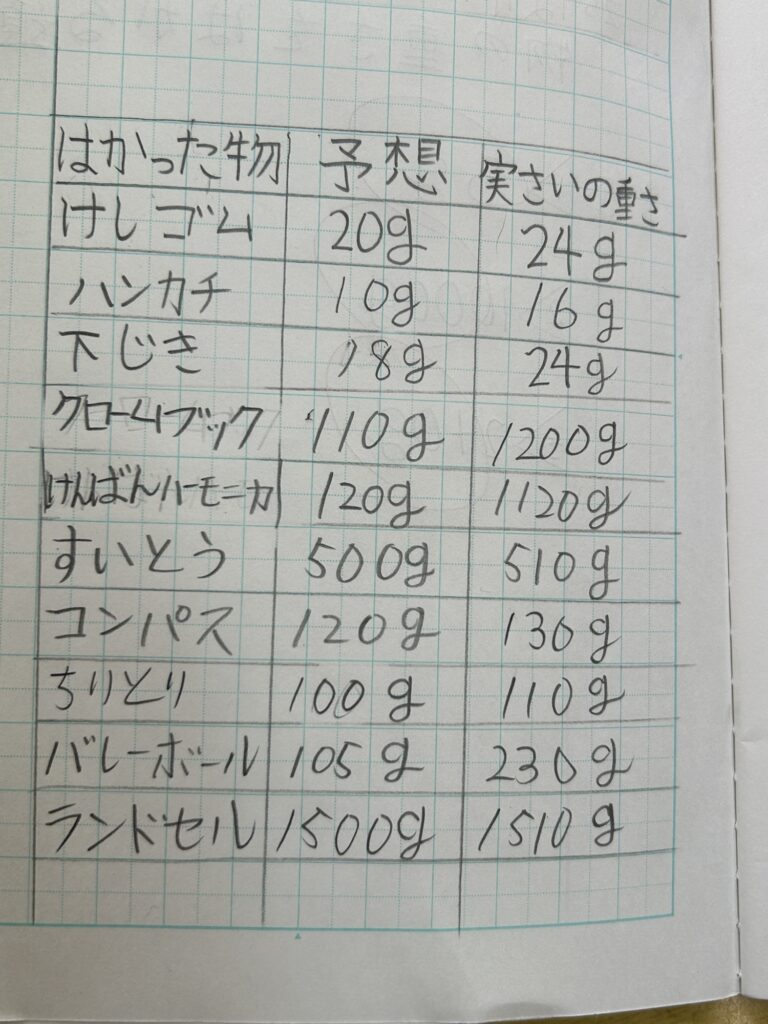 はかった物 予想 実さいの重さ
けしゴム 20g 24g
ハンカチ 10g 16g
下じき 18g 24g
クロームブック 110g 1200g
けんばんハーモニカ 120g 1120g
すいとう 500g 510g
コンパス 120g 130g
ちりとり 100g 110g
バレーボール 105g 230g
ランドセル 1500g 1510g